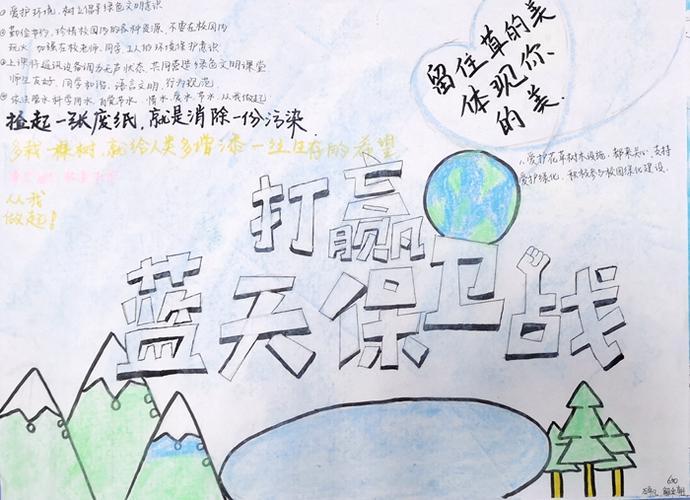 爱护环境，树立倡导绿色文明意识
②勤俭节约，珍惜校园内的各种资源，不要在校园内
玩火，加强在校老师、同学、工人的环境保护意识
③上课将通讯设备调为无声状态，共同营造绿色文明课堂
师生友好，同学和谐，语言文明，行为规范。
科学用水，节水，惜水、爱水、节水，从我做起
捡起一张废纸，就是消除一份污染.
多栽一棵树，就给人类多增添一丝生存的希望
从我
做起！
留住草的美
体现你
的美.
爱护花草树木设施，都来关心、支持
爱护绿化，积极参与校园绿化建设.
打赢
蓝天保卫战